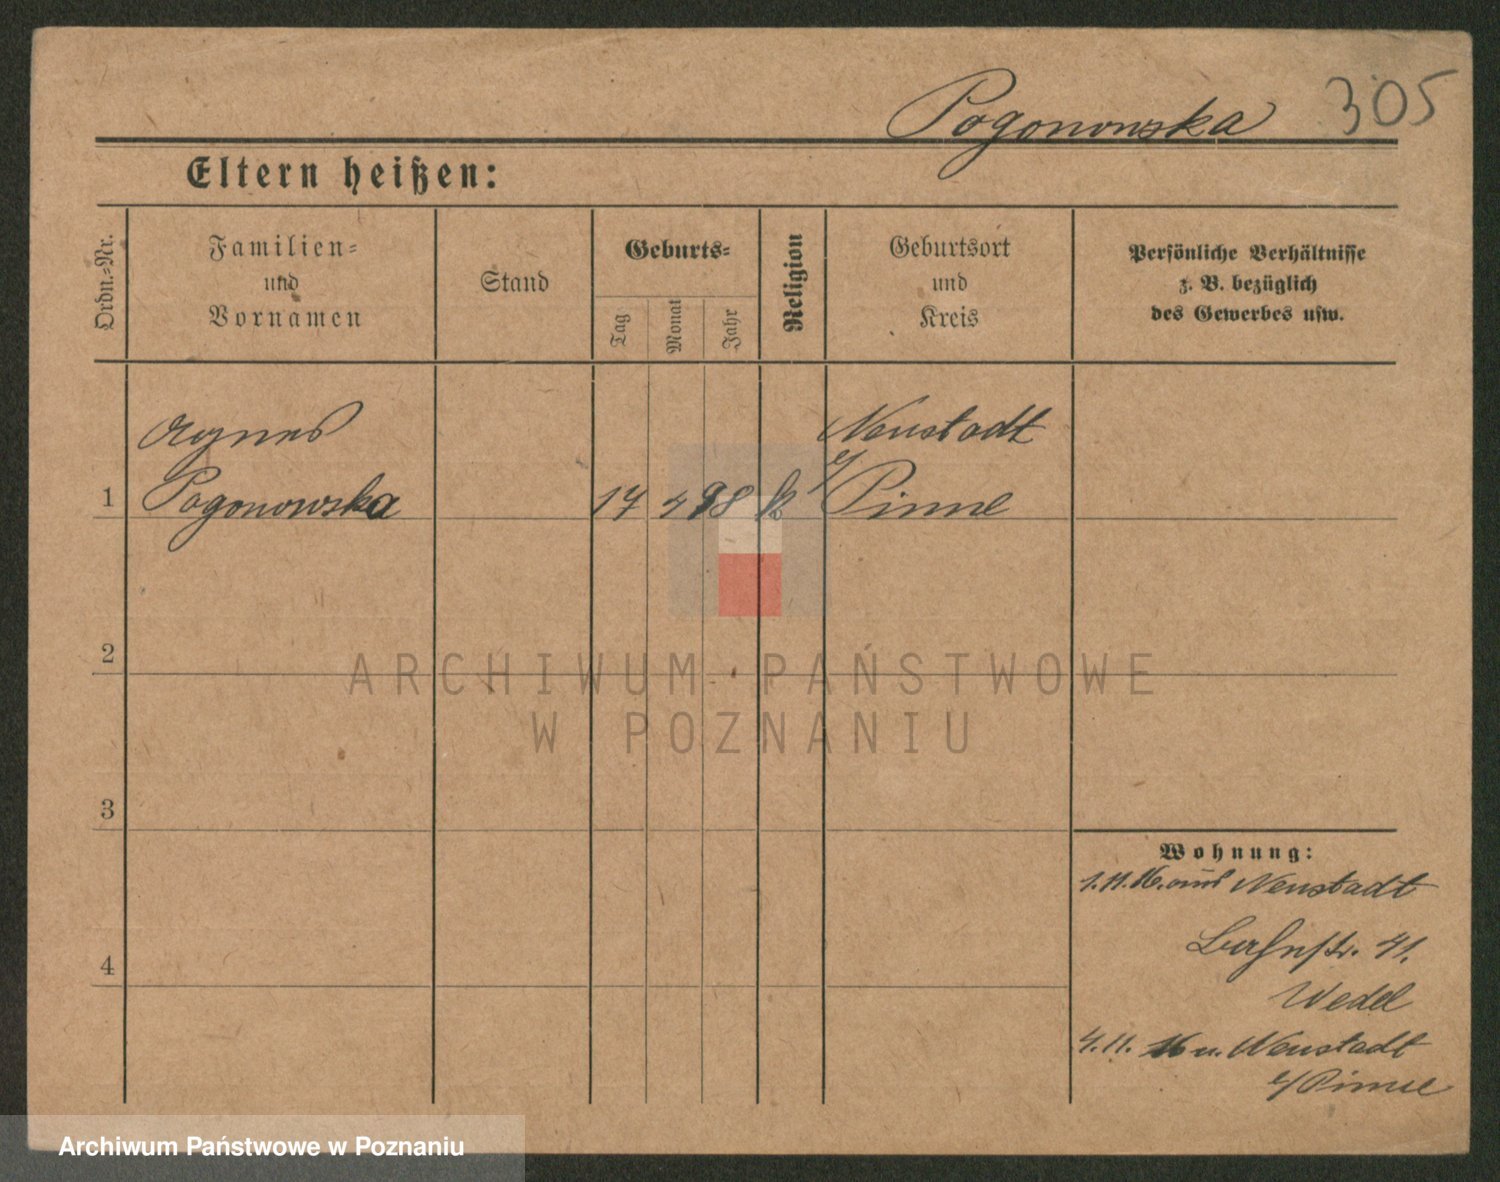 Pogonowska 305
Eltern heißen:
Ordn.=Nr.
Familien=
und
Vornamen
Stand
Geburts=
Tag
Monat
Jahr
Religion
Geburtsort
und
Kreis
Persönliche Verhältnisse
z. B. bezüglich
des Gewerbes usw.
Agnes
Pogonowska
Neustadt
1
17 4 98 k
b/ Pinne
2
ARCHIWUM PAŃSTWOWE
W POZNANIU
3
4
Wohnung:
1.11.16. aus Neustadt
41.
Wedel
4.11. 16 n. Neustadt
b/ Pinne
Archiwum Państwowe w Poznaniu